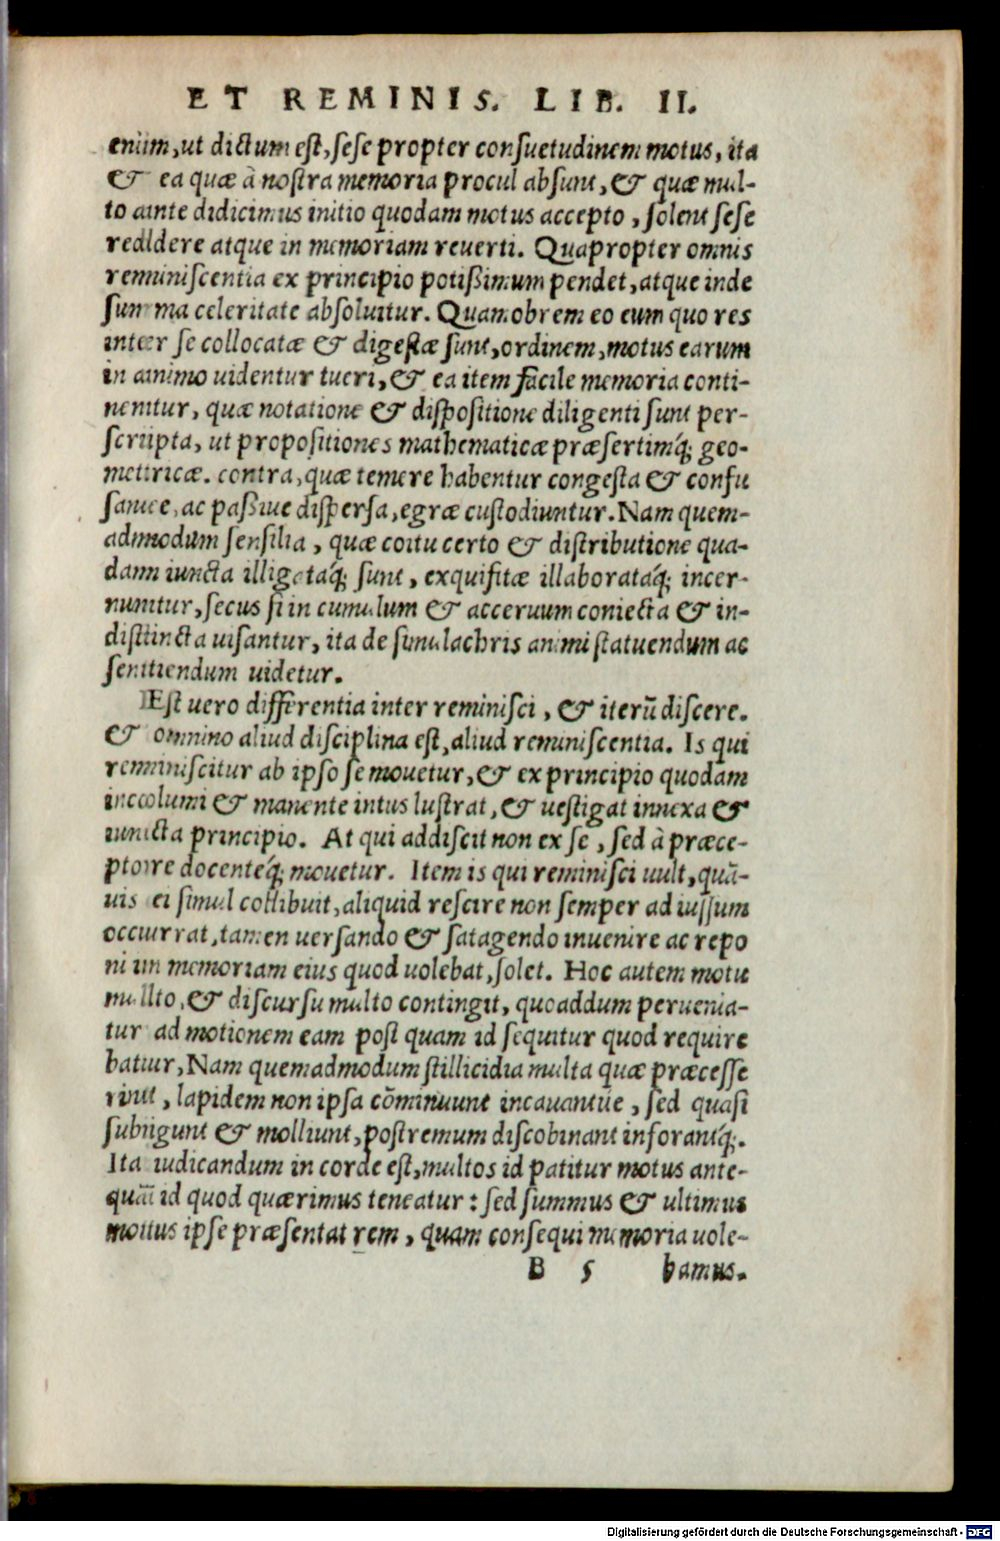 ET REMINIS. LIB. II.
enim, ut dictum est, sese propter consuetudinem motus, ita
& ea quæ à nostra memoria procul absunt, & quæ mul-
to ante didicimus initio quodam motus accepto, solent sese
reddere atque in memoriam reuerti. Quapropter omnis
reminiscentia ex principio potißimum pendet, atque inde
summa celeritate absoluitur. Quamobrem eo cum quo res
inter se collocatæ & digestæ sunt, ordinem, motus earum
in animo uidentur tueri, & ea item facile memoria conti-
nentur, quæ notatione & dispositione diligenti sunt per-
scripta, ut propositiones mathematicæ præsertimq́; geo-
metricæ. contra, quæ temere habentur congesta & confu
sance, ac paßiue dispersa, egræ custodiuntur. Nam quem-
admodum sensilia, quæ coitu certo & distributione qua-
dam iuncta illigataq́; sunt, exquisitæ illaborataq́; incer-
nuntur, secus si in cumulum & aceruum coniecta & in-
distincta uisantur, ita de simulachris animi statuendum ac
sentiendum uidetur.
Est uero differentia inter reminisci, & iterũ discere.
& omnino aliud disciplina est, aliud reminiscentia. Is qui
reminiscitur ab ipso se mouetur, & ex principio quodam
incolumi & manente intus lustrat, & uestigat innexa &
iuncta principio. At qui addiscit non ex se, sed à præce-
ptore docenteq́; mouetur. Item is qui reminisci uult, quã-
uis ei simul collibuit, aliquid rescire non semper ad iussum
occurrat, tamen uersando & satagendo inuenire ac repo
ni in memoriam eius quod uolebat, solet. Hoc autem motu
multo, & discursu multo contingit, quoaddum peruenia-
tur ad motionem eam post quam id sequitur quod require
batur, Nam quemadmodum stillicidia multa quæ præcesse
runt, lapidem non ipsa cõminuunt incauantue, sed quasi
subigunt & molliunt, postremum discobinant inforantq́;.
Ita iudicandum in corde est, multos id patitur motus ante-
quã id quod quærimus teneatur: sed summus & ultimus
motus ipse præsentat rem, quam consequi memoria uole-
B 5 bamus.
Digitalisierung gefördert durch die Deutsche Forschungsgemeinschaft - DFG